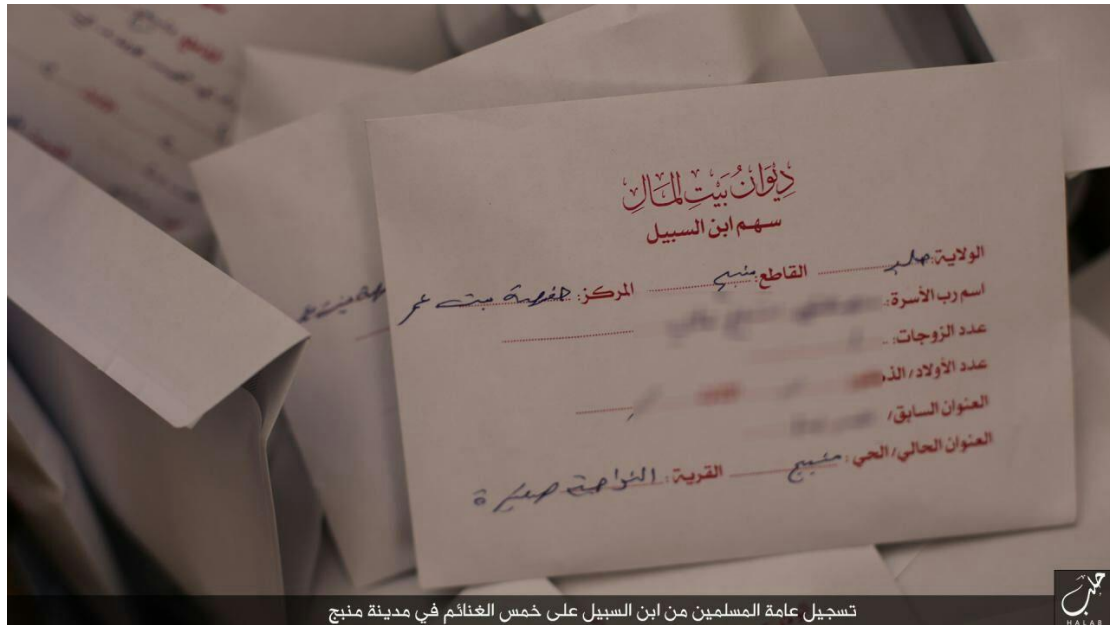 ديوان بيت المال
سهم ابن السبيل
الولاية: حلب القاطع: منبج المركز: حفصة بنت عمر
اسم رب الأسرة:
عدد الزوجات:
عدد الأولاد/الذ
العنوان السابق/
العنوان الحالي/الحي: منبج القرية: صغيرة
تسجيل عامة المسلمين من ابن السبيل على خمس الغنائم في مدينة منبج
حلب
HALAB